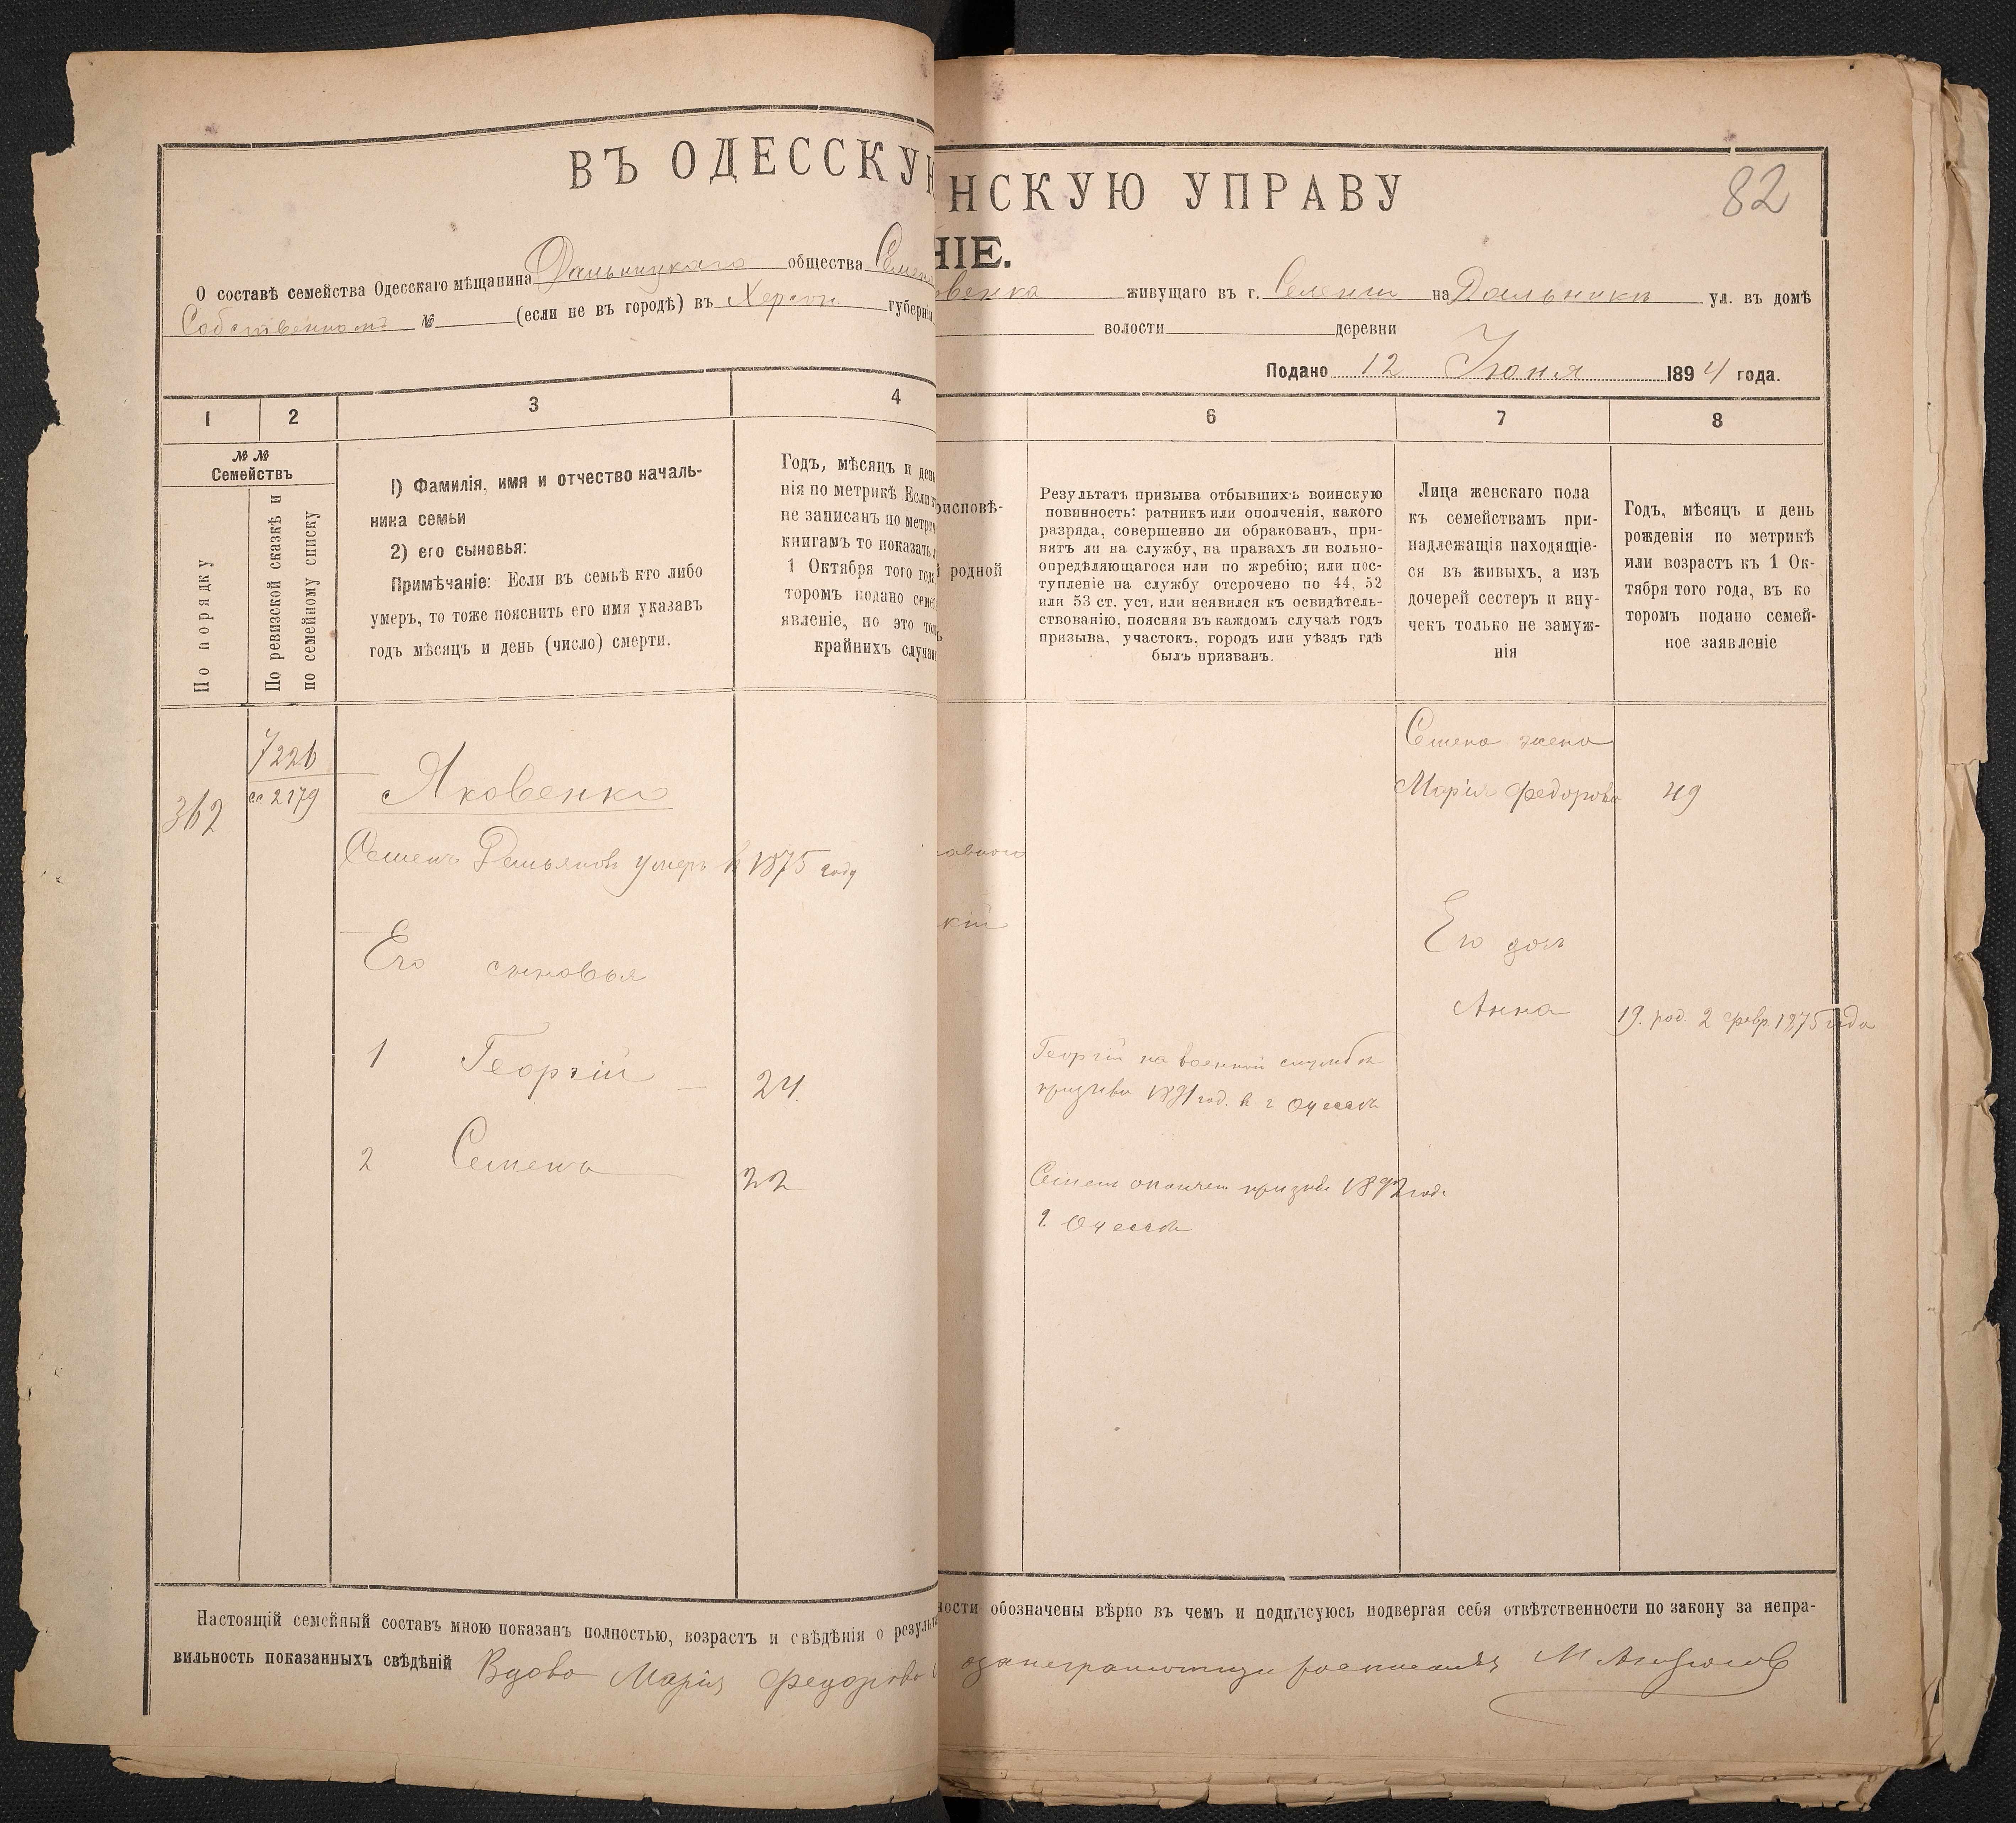 ВЪ ОДЕССКУЮ
НСКУЮ УПРАВУ
82
НІЕ.
О составѣ семейства Одесскаго мѣщанина Дальницкаго общества Семен
овенка живущаго въ г. Селеніи на Дальники ул. въ домѣ
Собственномъ № (если не въ городѣ) въ Херсон губерніи
волости деревни
Подано 12 Іюня 1894 года.
1 2 3 4
6 7 8
№ №
Семействъ
По порядку
По ревизской сказкѣ и
по семейному списку
1) Фамилія, имя и отчество началь-
ника семьи
2) его сыновья:
Примѣчаніе: Если въ семьѣ кто либо
умеръ, то тоже пояснить его имя указавъ
годъ мѣсяцъ и день (число) смерти.
Годъ, мѣсяцъ и день
нія по метрикѣ Если
не записанъ по метри
книгамъ то показать
1 Октября того года
торомъ подано семе
явленіе, но это толь
крайнихъ случа
оисповѣ-
й родной
Результатъ призыва отбывшихъ воинскую
повинность: ратникъ или ополченія, какого
разряда, совершенно ли обракованъ, при-
нятъ ли на службу, на правахъ ли вольно-
опредѣляющагося или по жребію; или пос-
тупленіе на службу отсрочено по 44, 52
или 53 ст. уст. или неявился къ освидѣтель-
ствованію, поясняя въ каждомъ случаѣ годъ
призыва, участокъ, городъ или уѣздъ гдѣ
былъ призванъ.
Лица женскаго пола
къ семействамъ при-
надлежащія находящіе-
ся въ живыхъ, а изъ
дочерей сестеръ и вну-
чекъ только не замуж-
нія
Годъ, мѣсяцъ и день
рожденія по метрикѣ
или возрастъ къ 1 Ок-
тября того года, въ ко
торомъ подано семей-
ное заявленіе
7226
362 сс 2179 Яковенко
Семенъ Демьяновъ умеръ в 1875 году
Его сыновья
1 Георгій 24
2 Семенъ 22
авного
кій
Георгій на военной службѣ
призыва 1891 год. в г Одессѣ
Семенъ призыва 1892 года
г. Одессѣ
Семена жена
Марія Федорова 49
Его доч
Анна 19. род. 2 февр 1875 года
Настоящій семейный составъ мною показанъ полностью, возрастъ и свѣдѣнія о результ
ности обозначены вѣрно въ чемъ и подписуюсь подвергая себя отвѣтственности по закону за непра-
вильность показанныхъ свѣдѣній Вдова Марія Федорова